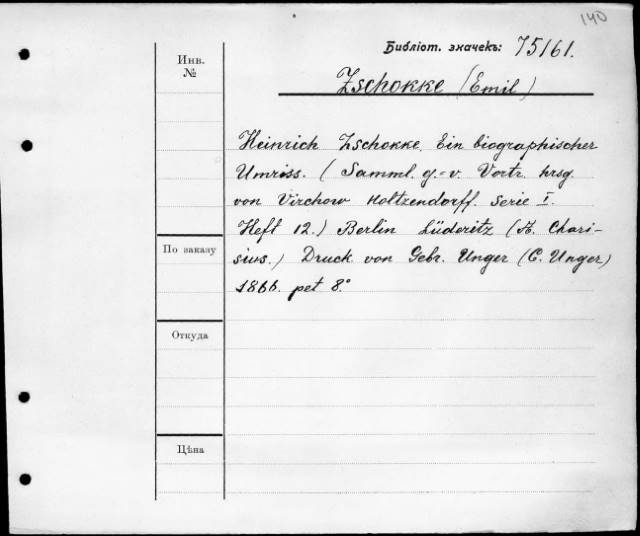 140
Библіот. значекъ: 75161.
Инв.
№
Zschokke (Emil)
Heinrich Zschokke. Ein biographischer
Umriss. (Samml. g.-v. Vortr. hrsg
von Virchow Holtzendorff. Serie I.
Heft 12.) Berlin Lüderitz (A. Chari-
sius.) Druck von Gebr. Unger (C. Unger)
1866. pet 8.°
По заказу
Откуда
Цѣна